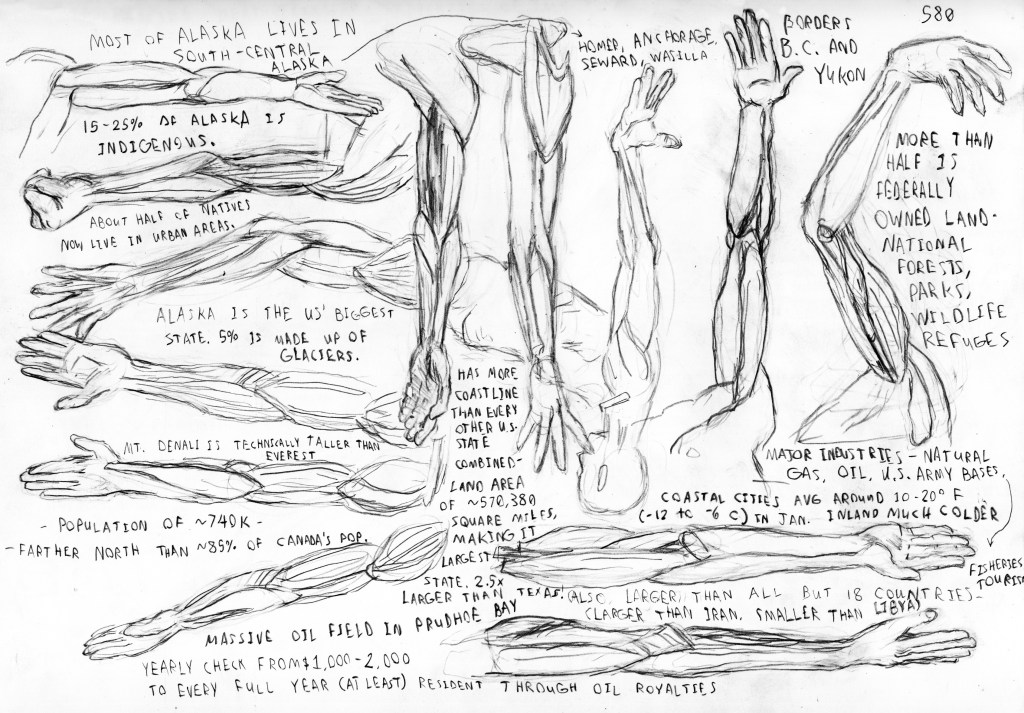 MOST OF ALASKA LIVES IN
SOUTH-CENTRAL
ALASKA
HOMER, ANCHORAGE,
SEWARD, WASILLA
BORDERS
B.C. AND
YUKON
580
15-25% OF ALASKA IS
INDIGENOUS.
ABOUT HALF OF NATIVES
NOW LIVE IN URBAN AREAS.
MORE THAN
HALF IS
FEDERALLY
OWNED LAND-
NATIONAL
FORESTS,
PARKS,
WILDLIFE
REFUGES
ALASKA IS THE US' BIGGEST
STATE. 5% IS MADE UP OF
GLACIERS.
HAS MORE
COASTLINE
THAN EVERY
OTHER U.S.
STATE
COMBINED-
LAND AREA
OF ~570,380
SQUARE MILES,
MAKING IT
LARGEST
STATE. 2.5x
LARGER THAN TEXAS!
(ALSO, LARGER THAN ALL BUT 18 COUNTRIES-
(LARGER THAN IRAN, SMALLER THAN LIBYA)
MT. DENALI IS TECHNICALLY TALLER THAN
EVEREST
- POPULATION OF ~740K -
- FARTHER NORTH THAN ~85% OF CANADA'S POP.
MAJOR INDUSTRIES - NATURAL
GAS, OIL, U.S. ARMY BASES,
FISHERIES
TOURISM
COASTAL CITIES AVG AROUND 10-20° F
(-12 to -6 C) IN JAN. INLAND MUCH COLDER
MASSIVE OIL FIELD IN PRUDHOE BAY
YEARLY CHECK FROM $1,000-2,000
TO EVERY FULL YEAR (AT LEAST) RESIDENT THROUGH OIL ROYALTIES